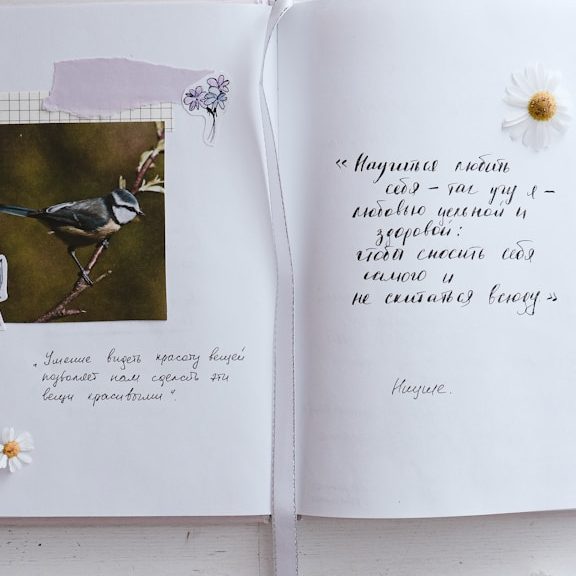 „Умение видеть красоту вещей
позволяет нам сделать эти
вещи красивыми".
«Научиться любить
себя – так учу я –
любовью цельной и
здоровой:
чтобы сносить себя
самого и
не скитаться всюду»
Ницше.